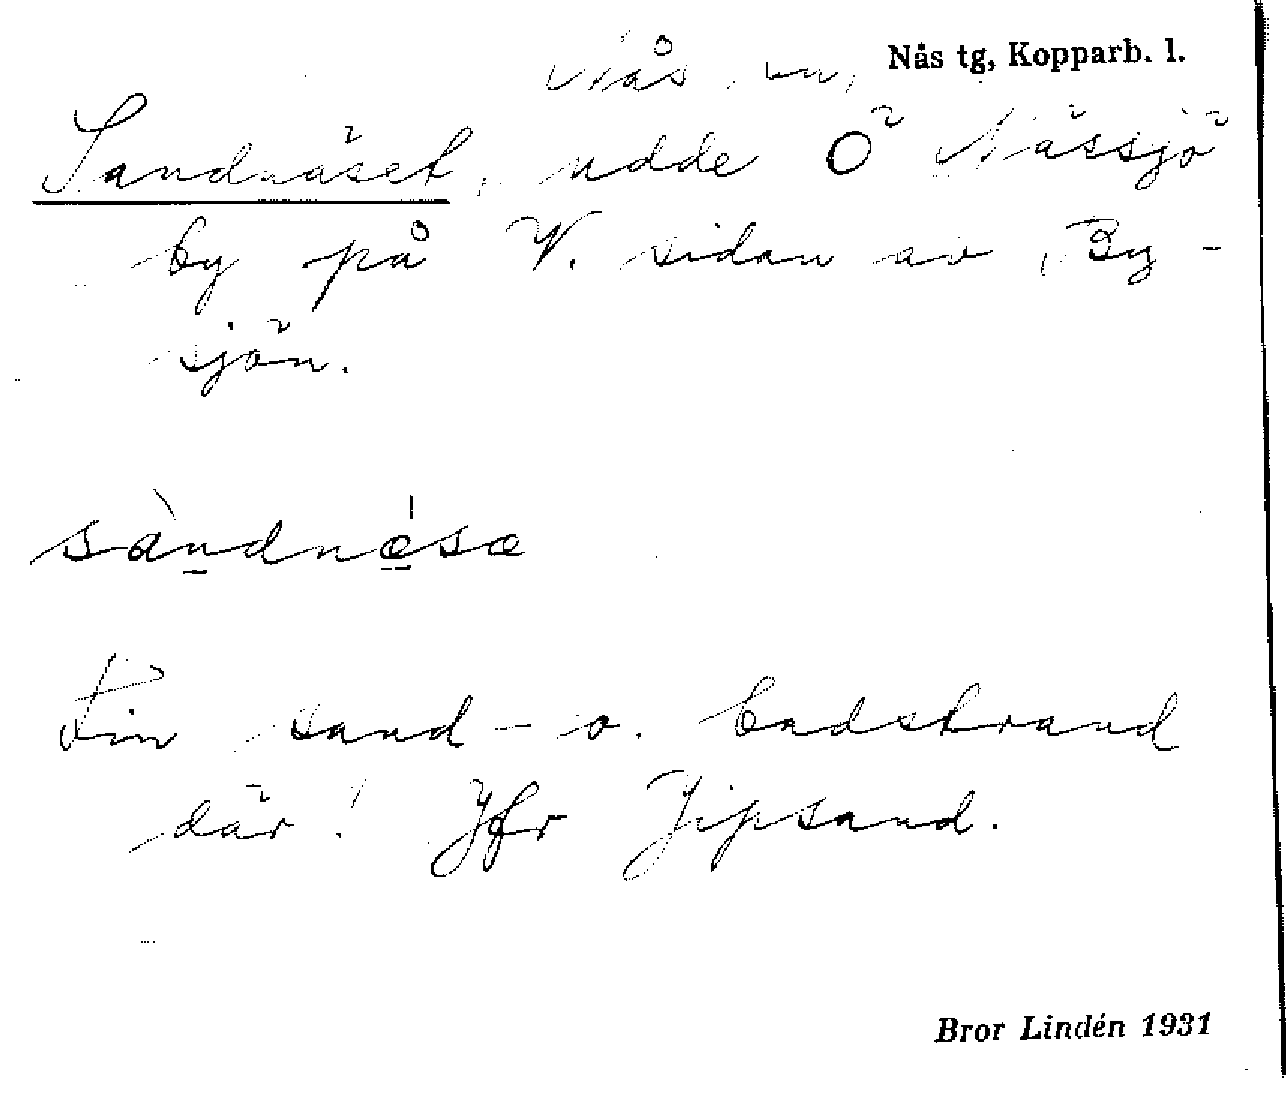 Nås sn, Nås tg, Kopparb. l.
Sandnäset, udde Ö Nässjö
by på V. sidan av By-
sjön.
sàndnǽsæ
Fin sand- o. badstrand
där! Jfr Jipsand.
Bror Lindén 1931